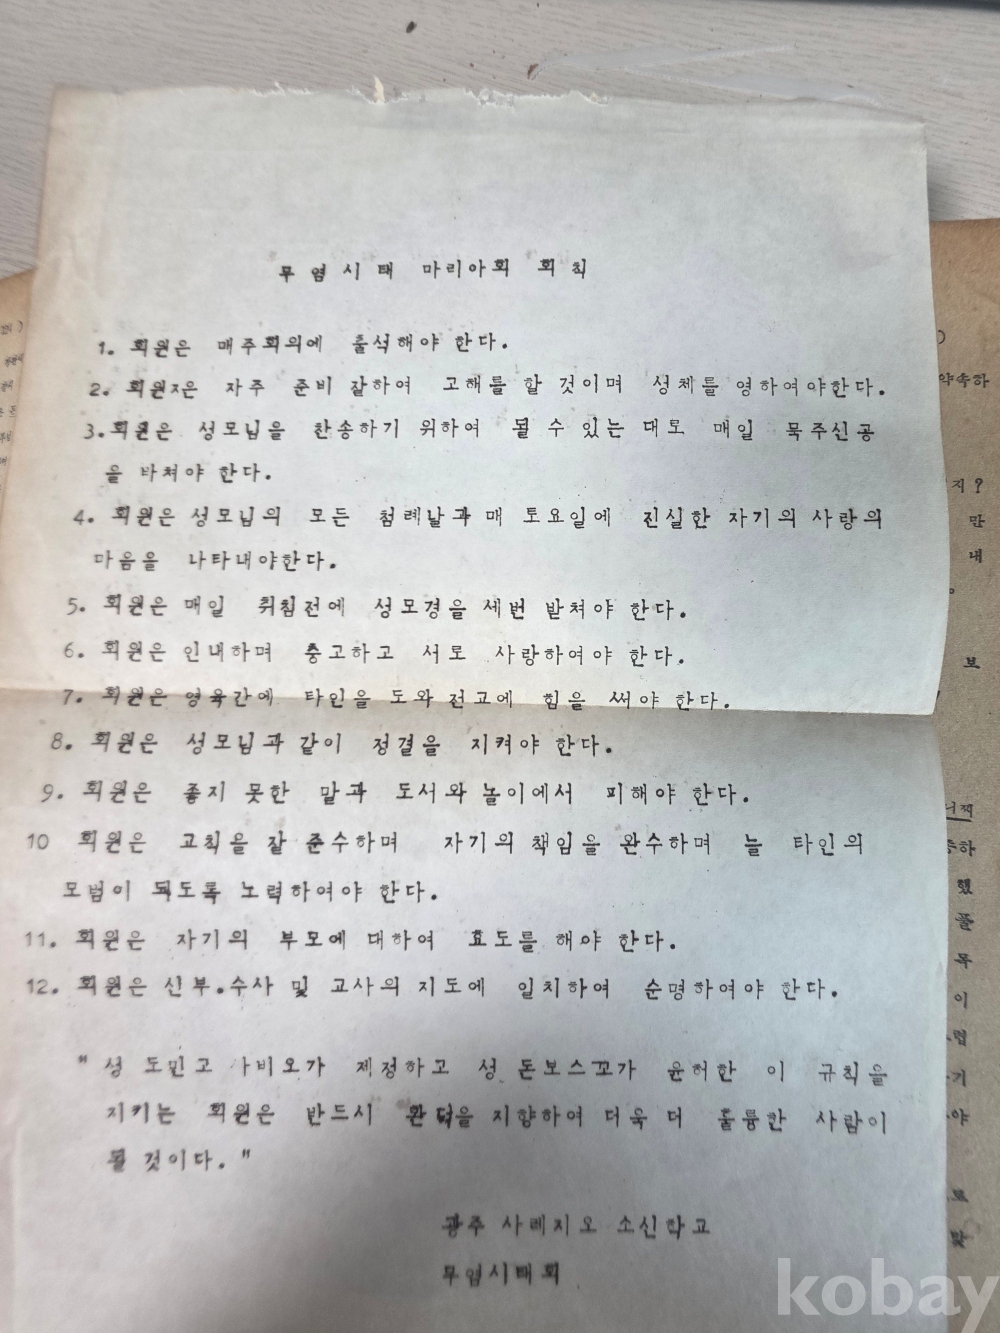 무염시태 마리아회 회칙
1. 회원은 매주회의에 출석해야 한다.
2. 회원x은 자주 준비 잘하여 고해를 할 것이며 성체를 영하여야한다.
3.회원은 성모님을 찬송하기 위하여 될 수 있는 대로 매일 묵주신공
을 바쳐야 한다.
4. 회원은 성모님의 모든 첨례날과 매 토요일에 진실한 자기의 사랑의
마음을 나타내야한다.
5. 회원은 매일 취침전에 성모경을 세번 받쳐야 한다.
6. 회원은 인내하며 충고하고 서로 사랑하여야 한다.
7. 회원은 영육간에 타인을 도와 전교에 힘을 써야 한다.
8. 회원은 성모님과 같이 정결을 지켜야 한다.
9. 회원은 좋지 못한 말과 도서와 놀이에서 피해야 한다.
10 회원은 교칙을 잘 준수하며 자기의 책임을 완수하며 늘 타인의
모범이 되도록 노력하여야 한다.
11. 회원은 자기의 부모에 대하여 효도를 해야 한다.
12. 회원은 신부.수사 및 교사의 지도에 일치하여 순명하여야 한다.
" 성 도민고 사비오가 제정하고 성 돈보스꼬가 윤허한 이 규칙을
지키는 회원은 반드시 완덕을 지향하여 더욱 더 훌륭한 사람이
될 것이다. "
광주 사레지오 소신학교
무염시태회
약속하
지?
만
내
브
니쩍
했
풀
목
이
kobay